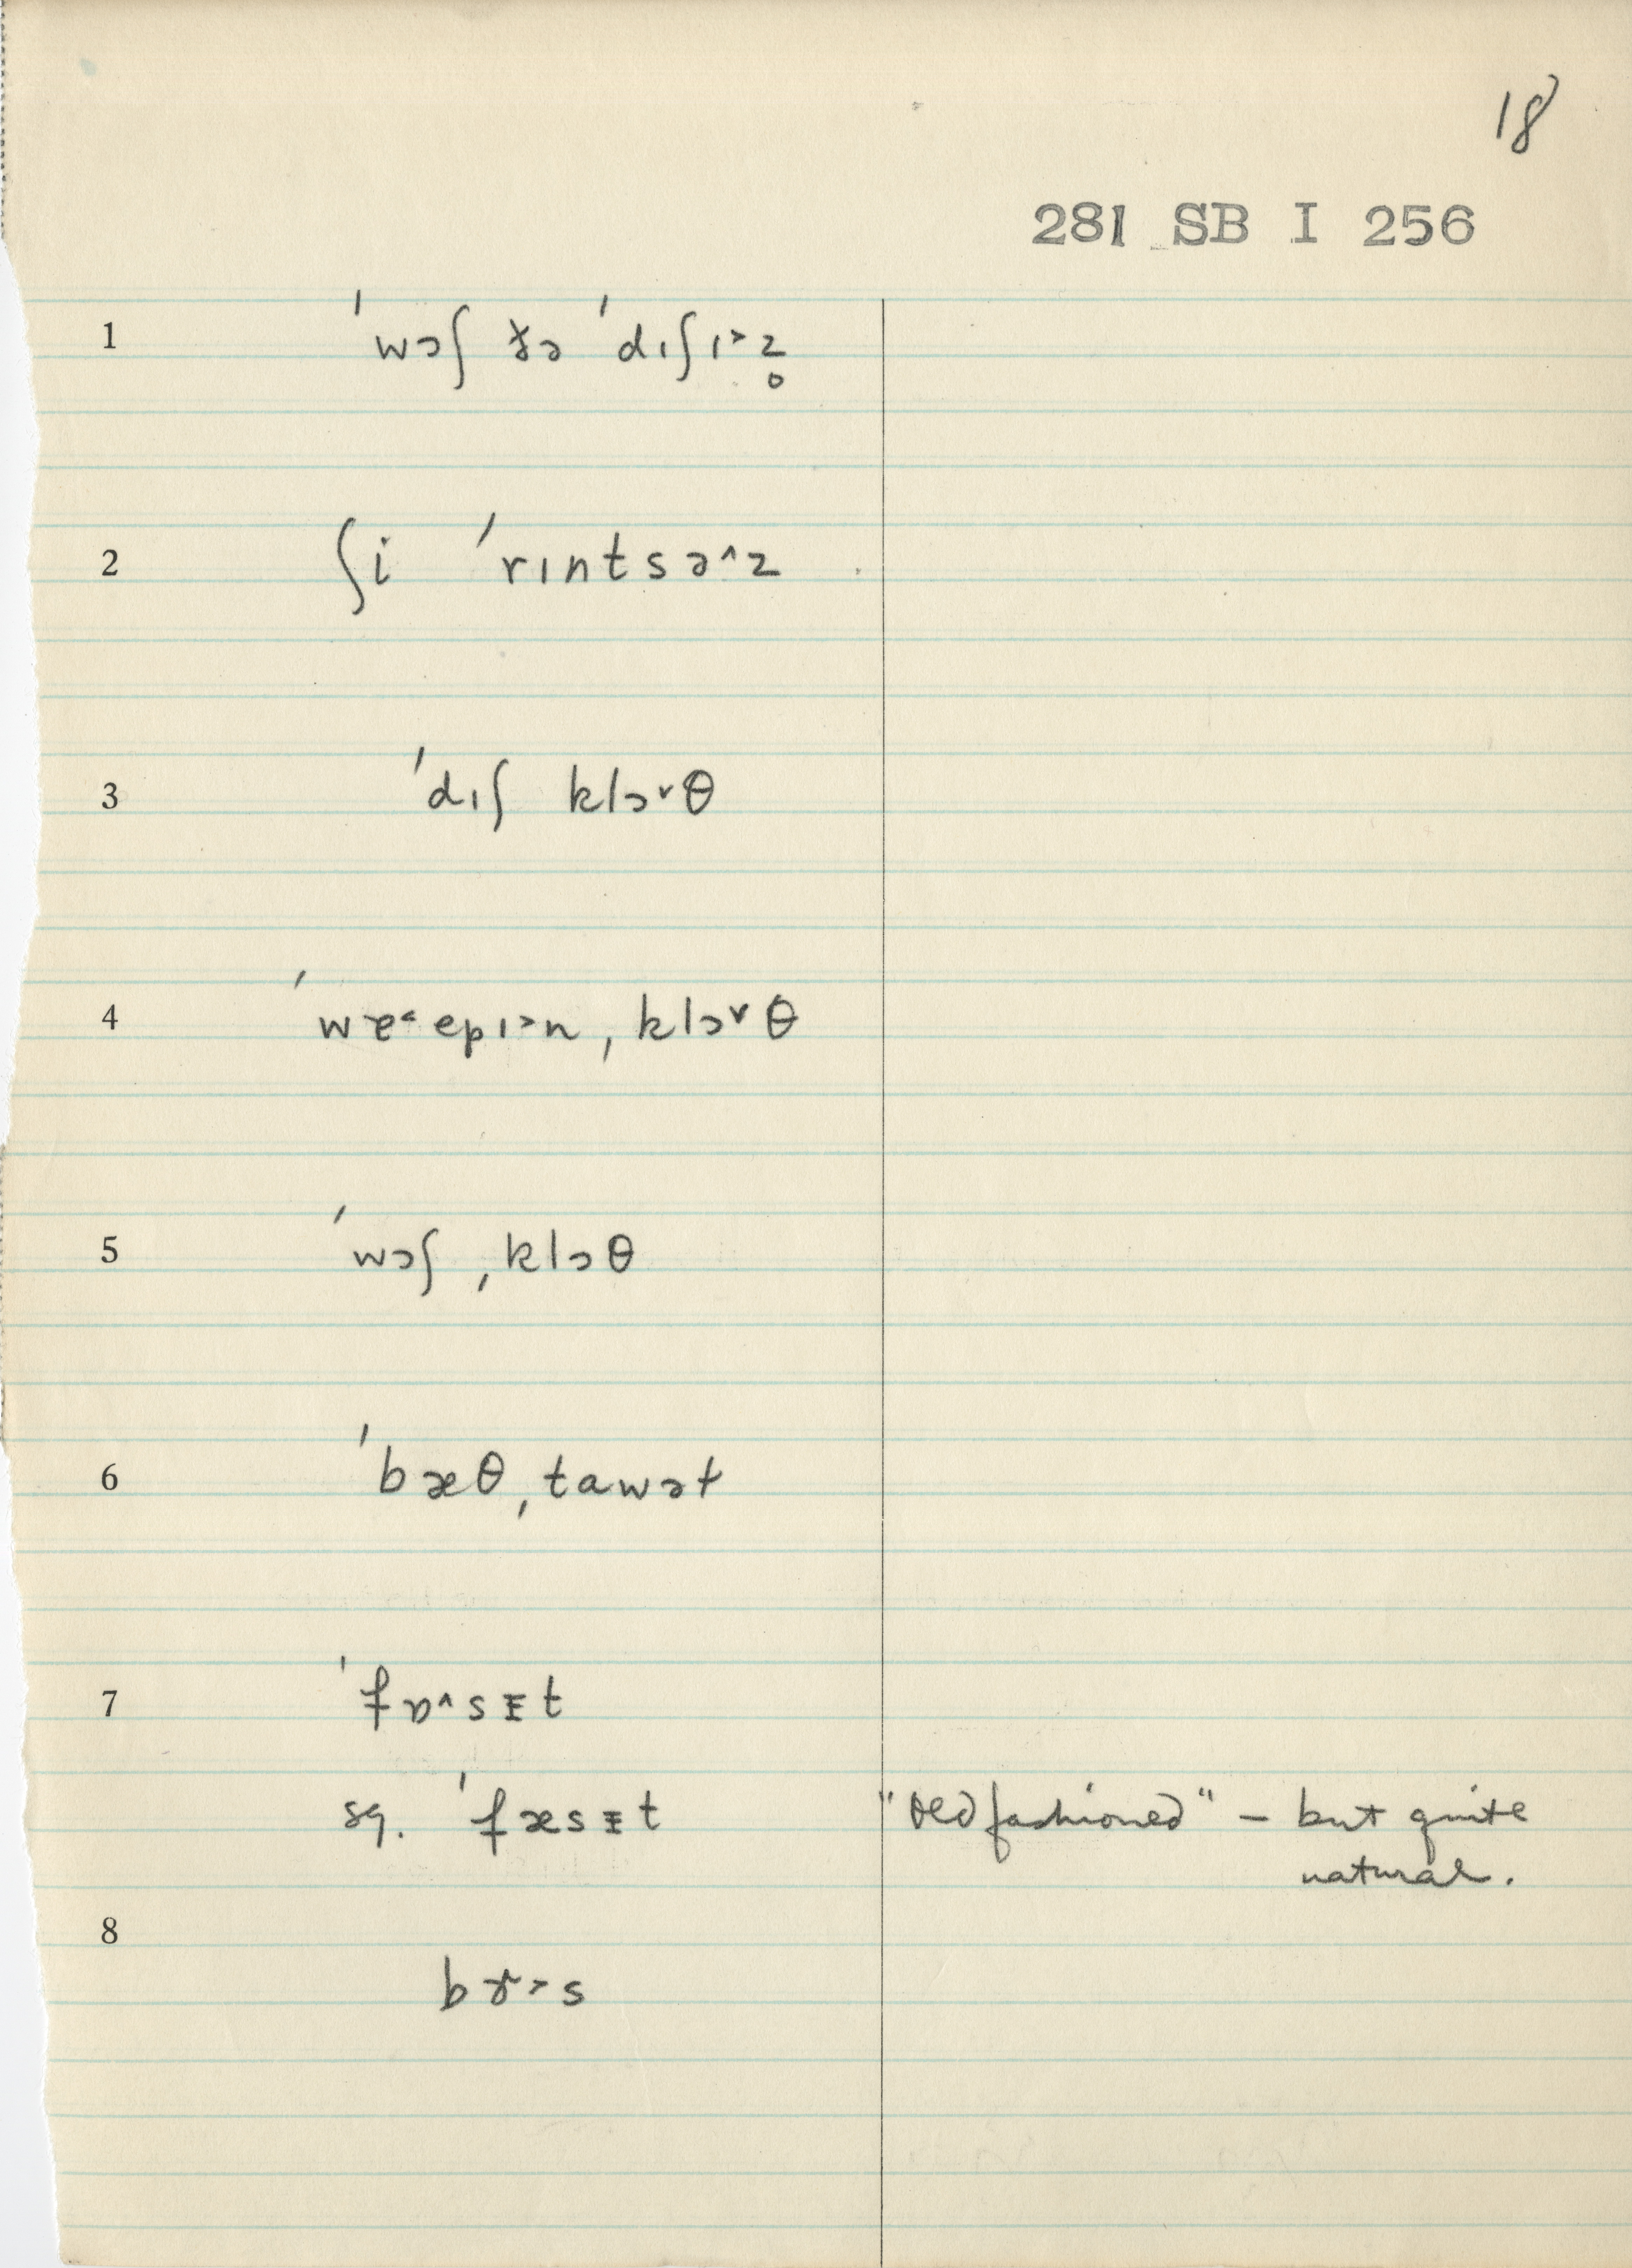 18
281 SB I 256
1 ˈwɔʃ ðə ˈdɪʃɪ˃z̥
2 ʃi ˈrɪntsə˄z
3 ˈdɪʃ klɔ˅θ
4 ˈwɐ˂epɪ˃n ˌklɔ˅θ
5 ˈwɔʃ ˌklɔθ
6 ˈbæθˌtawət
7 ˈfɒ˄sɪt
sq. ˈfæsɪt "Old fashioned" – but quite
natural.
8
bɤ˃s